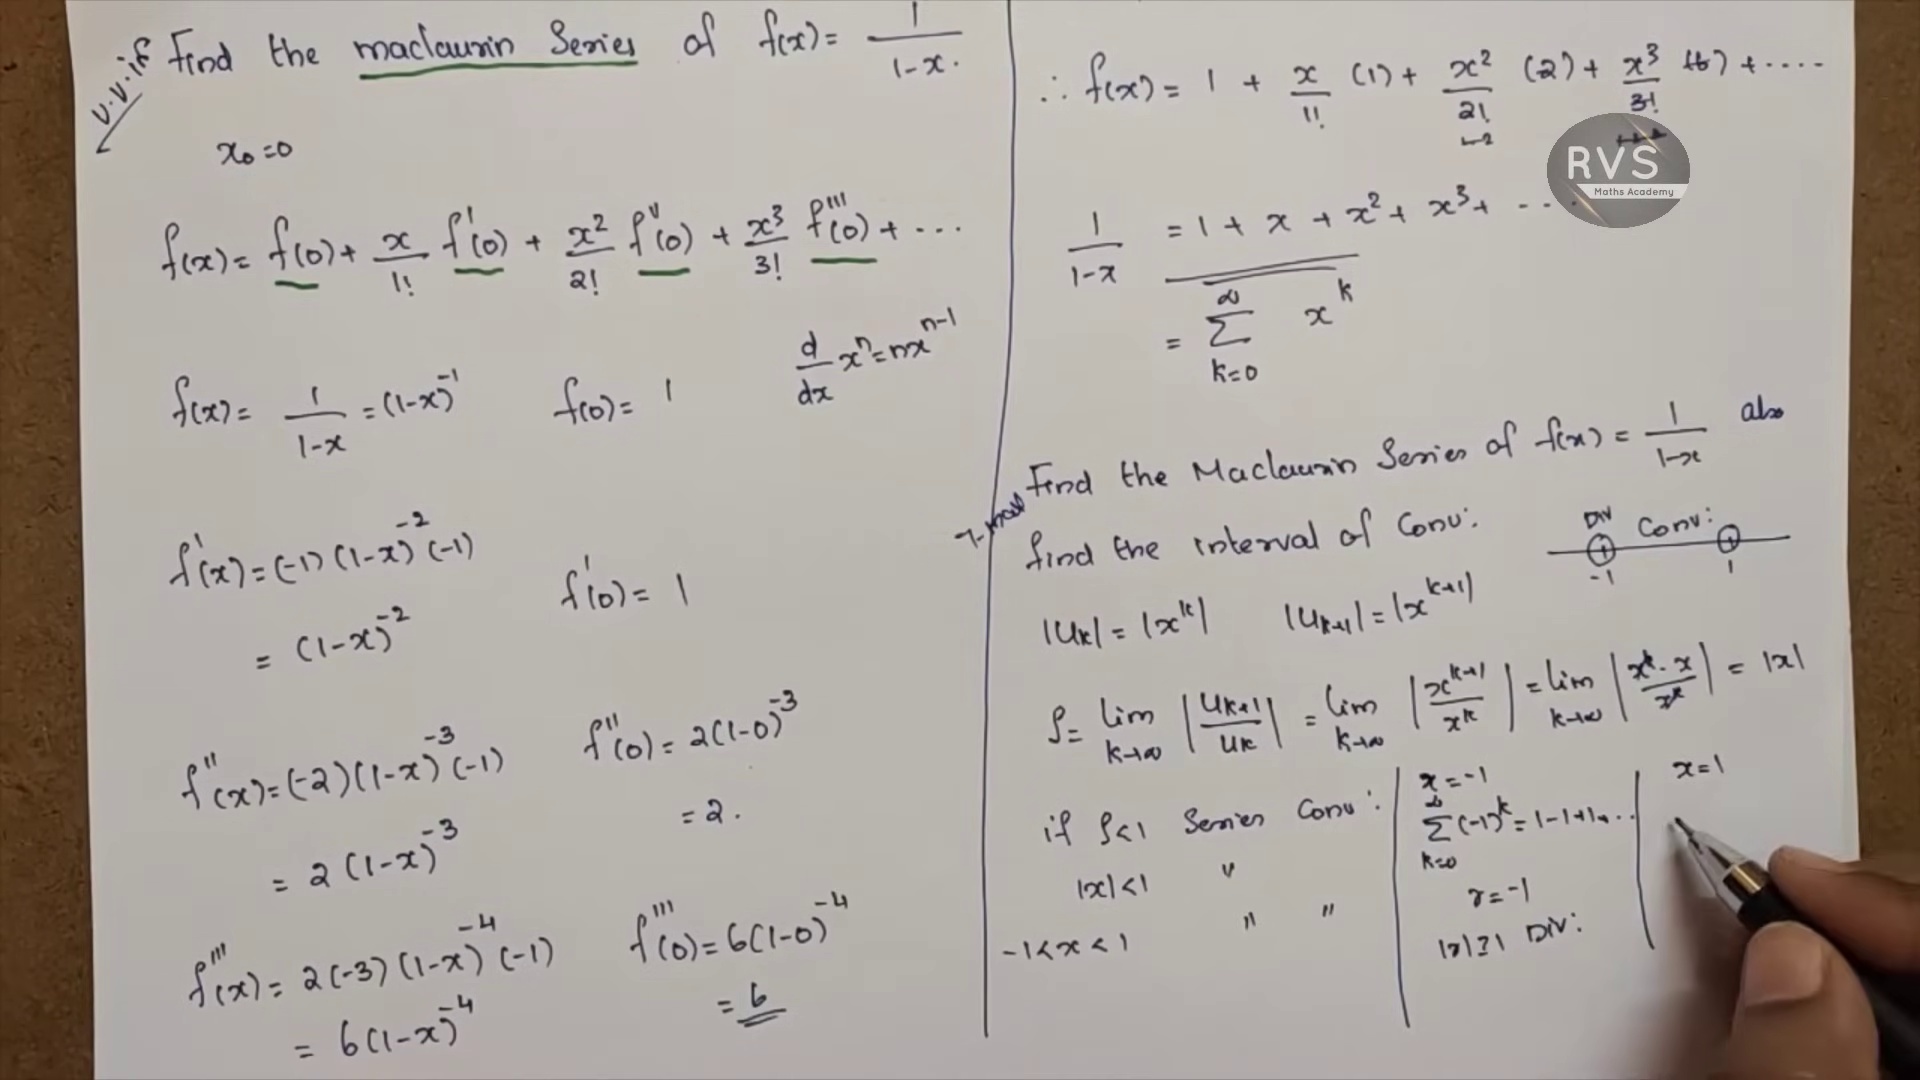 V.V.if Find the maclaurin Series of f(x) = 1/(1-x).
x₀ = 0
f(x) = f(0) + x/1! f'(0) + x²/2! f''(0) + x³/3! f'''(0) + ...
d/dx xⁿ = nxⁿ⁻¹
f(x) = 1/(1-x) = (1-x)⁻¹ f(0) = 1
f'(x) = (-1)(1-x)⁻²(-1)
= (1-x)⁻² f'(0) = 1
f''(x) = (-2)(1-x)⁻³(-1) f''(0) = 2(1-0)⁻³
= 2(1-x)⁻³ = 2.
f'''(x) = 2(-3)(1-x)⁻⁴(-1) f'''(0) = 6(1-0)⁻⁴
= 6(1-x)⁻⁴ = 6
∴ f(x) = 1 + x/1! (1) + x²/2! (2) + x³/3! (6) + ....
RVS
Maths Academy
1/(1-x) = 1 + x + x² + x³ + ...
= ∞ Σ k=0 xᵏ
Find the Maclaurin Series of f(x) = 1/(1-x) also
find the interval of Conv:
Div Conv:
-1 1
|Uk| = |xᵏ| |Uk+1| = |xᵏ⁺¹|
ρ = lim k→∞ |Uk+1/Uk| = lim k→∞ |xᵏ⁺¹/xᵏ| = lim k→∞ |xᵏ·x/xᵏ| = |x|
if ρ<1 Series Conv:
|x|<1 "
-1<x<1 " "
x = -1
∞ Σ k=0 (-1)ᵏ = 1-1+1+..
r = -1
|r|≥1 Div:
x = 1